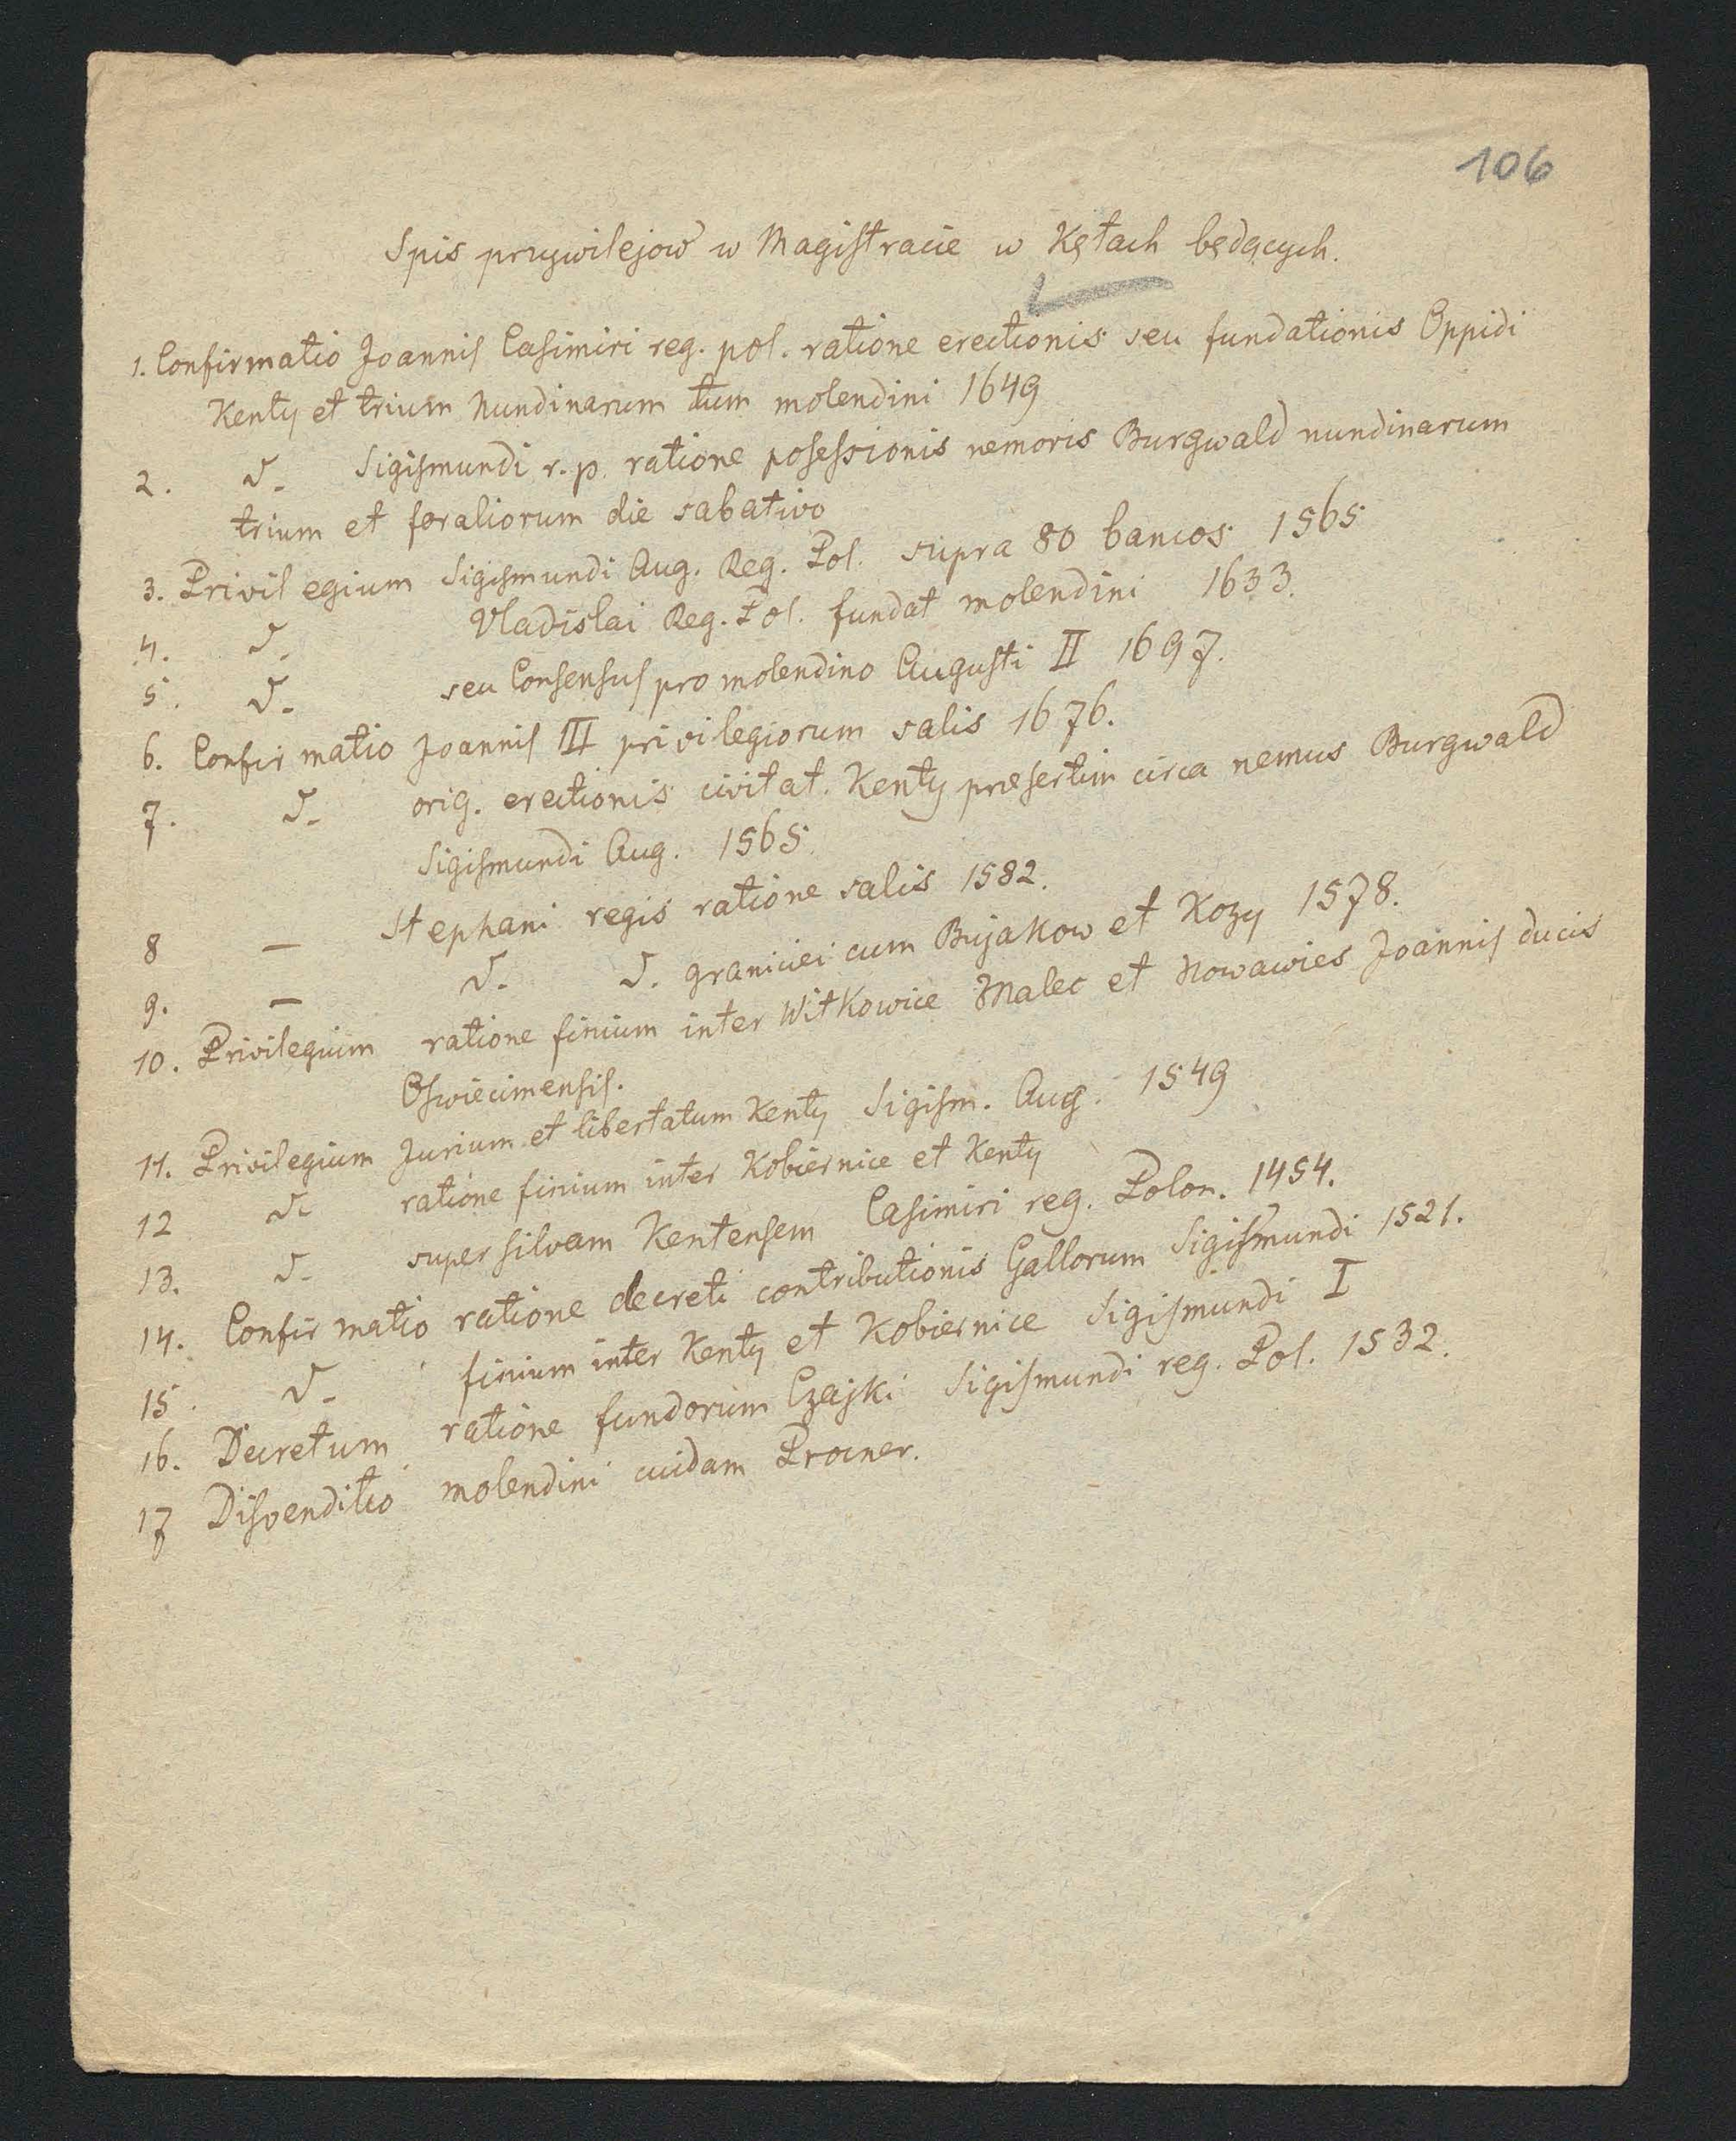 106
Spis przywilejow w Magistracie w Kętach będących.
1. Confirmatio Joannis Casimiri reg. pol. ratione erectionis seu fundationis Oppidi
Kenty et trium Nundinarum tum molendini 1649
2. d_ Sigismundi r. p. ratione posessionis nemoris Burgwald nundinarum
trium et foraliorum die sabativo
3. Privilegium Sigismundi Aug. Reg. Pol. supra 80 bancos 1565
4. d_ Vladislai Reg. Pol. fundat molendini 1633.
5. d_ seu Consensus pro molendino Augusti II 1697.
6. Confirmatio Joannis III privilegiorum salis 1676.
7. d_ orig. erectionis civitat. Kenty præsertim circa nemus Burgwald
Sigismundi Aug. 1565.
8 — Stephani regis ratione salis 1582.
9. — d. d. graniciei cum Bujakow et Kozy 1578.
10. Privilegium ratione finium inter Witkowice Malec et Nowawies Joannis ducis
Oswiecimensis.
11. Privilegium Jurium et libertatum Kenty Sigism. Aug. 1549
12 d_ ratione finium inter Kobiernice et Kenty
13. d_ super silvam Kentensem Casimiri reg. Polon. 1454.
14. Confirmatio ratione decreti contributionis Gallorum Sigismundi 1521.
15. d_ finium inter Kenty et Kobiernice Sigismundi I
16. Decretum ratione fundorum Czajki Sigismundi reg. Pol. 1532.
17 Disvenditio molendini cuidam Procner.